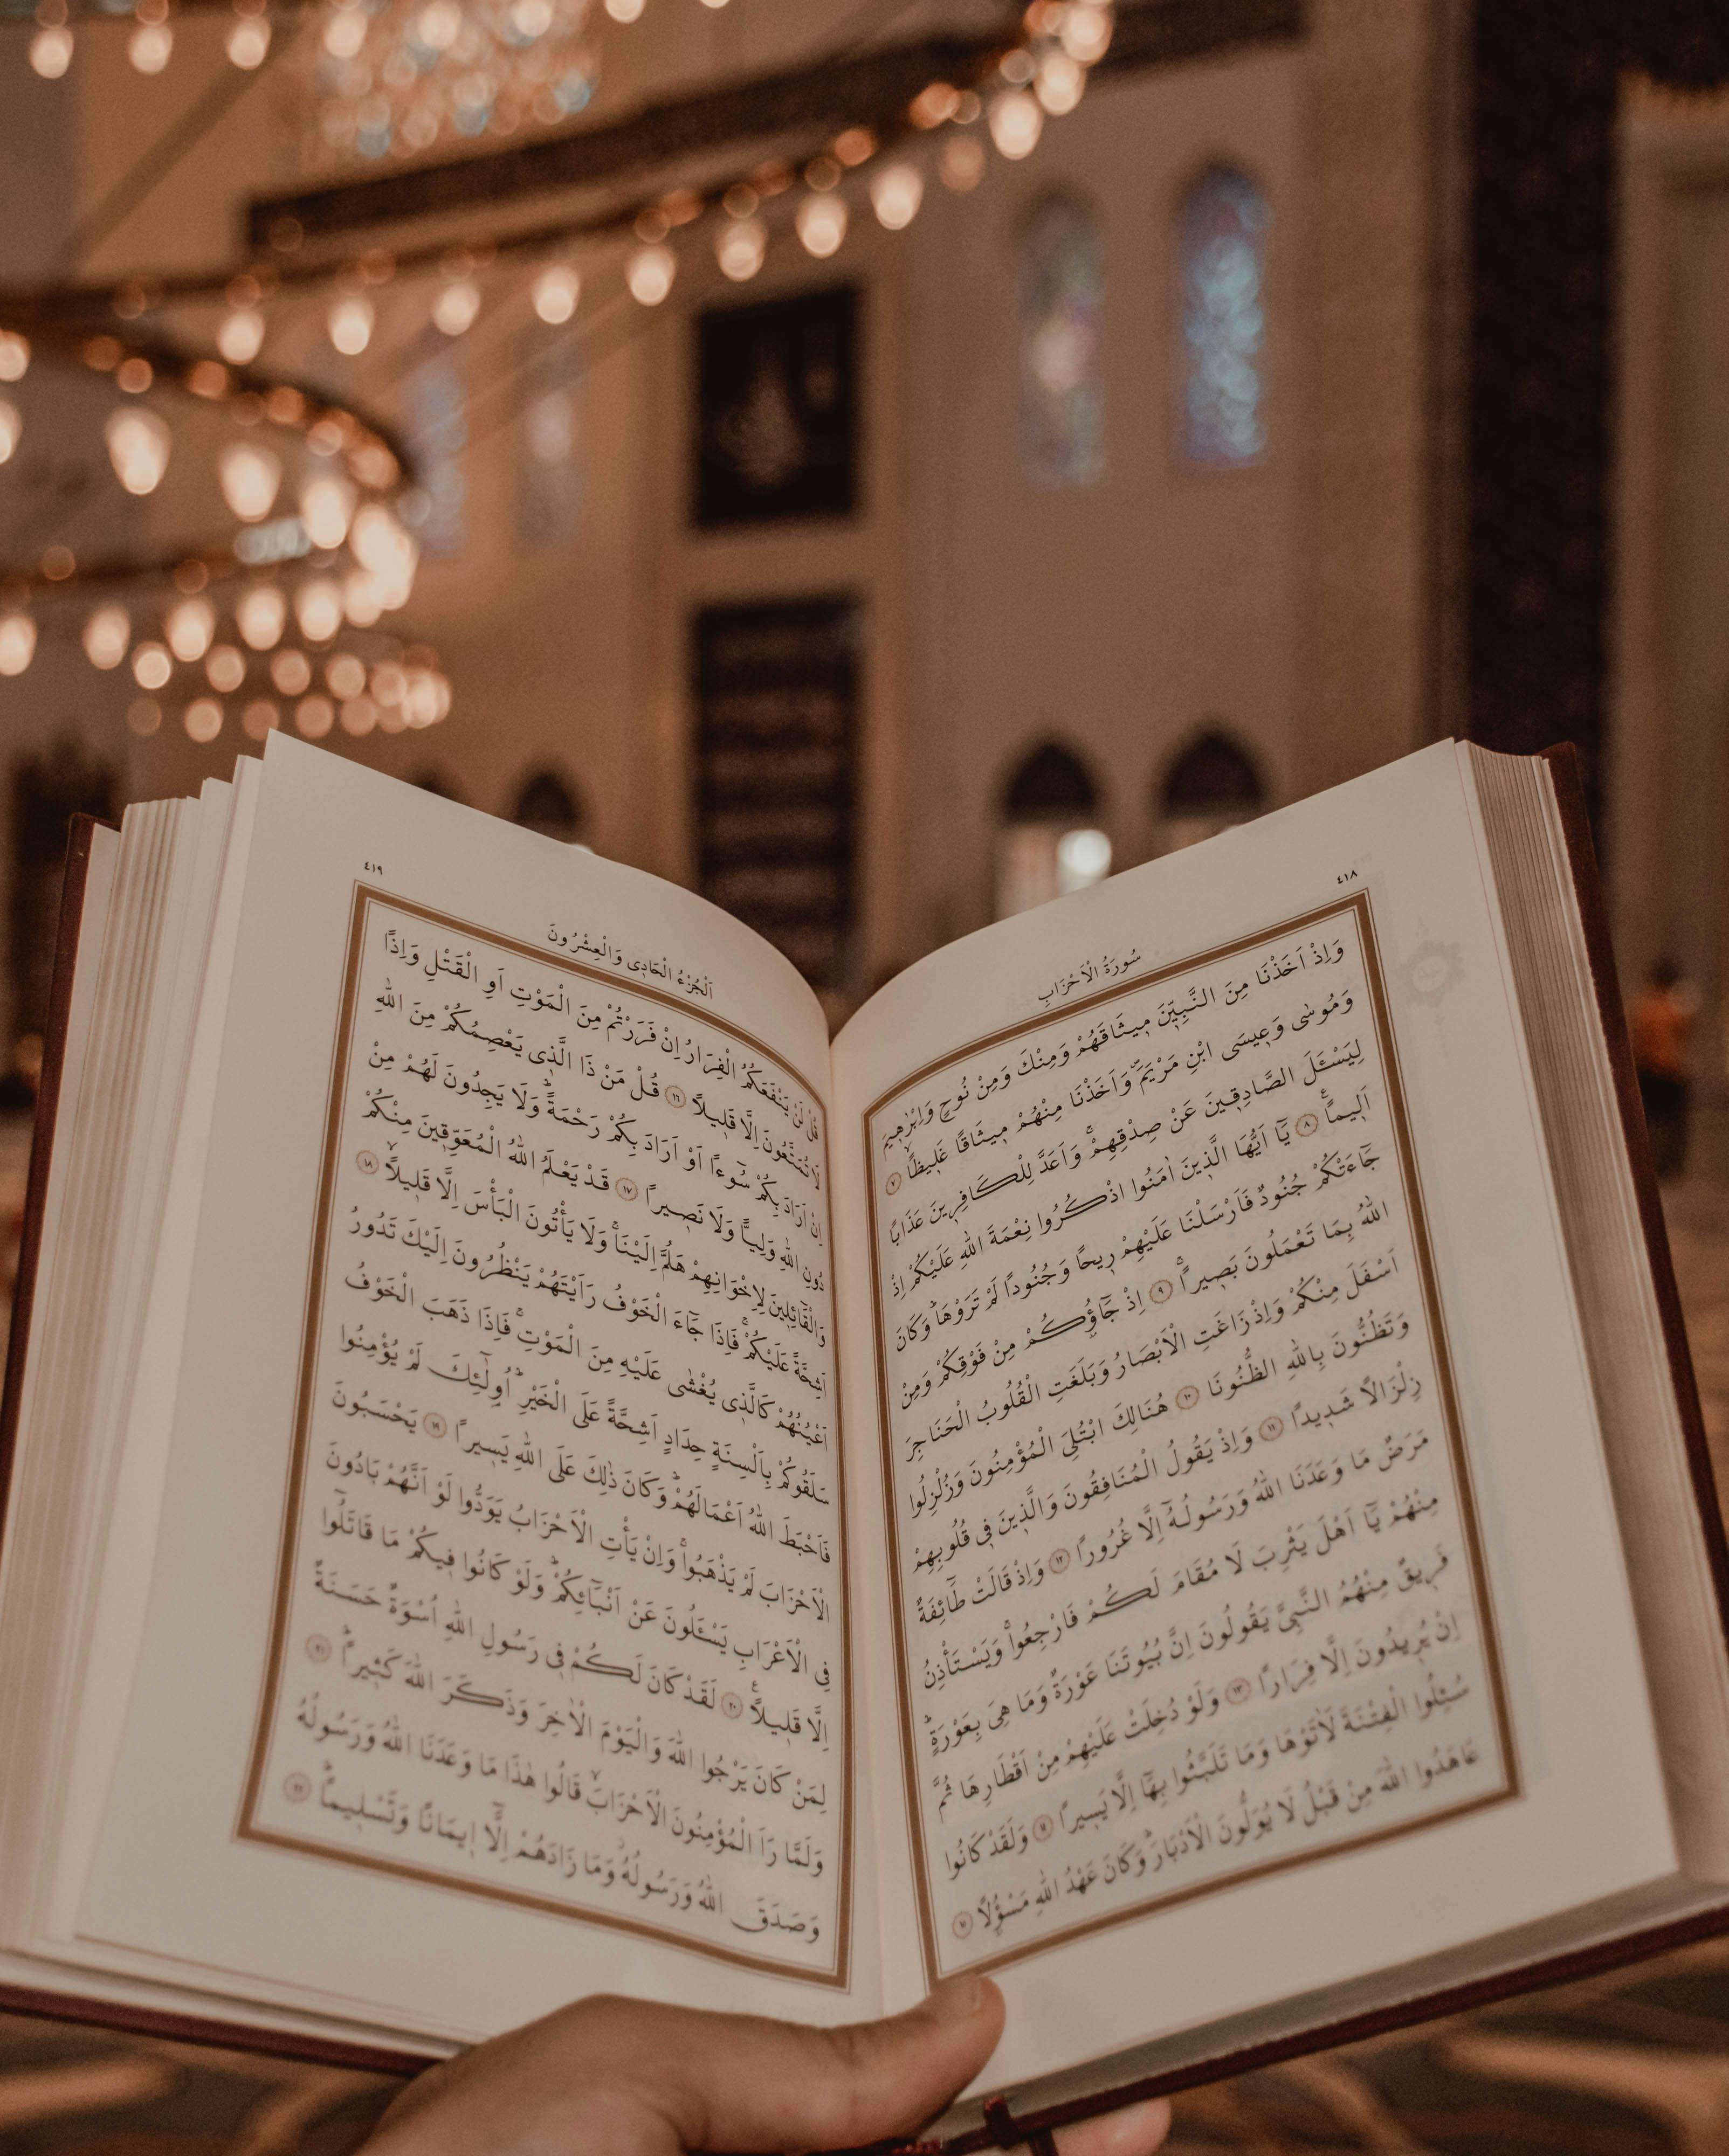 ٤١٨
سُورَةُ الْاَحْزَابِ
وَاِذْ اَخَذْنَا مِنَ النَّبِيّٖنَ مٖيثَاقَهُمْ وَمِنْكَ وَمِنْ نُوحٍ وَاِبْرٰهٖيمَ
وَمُوسٰى وَعٖيسَى ابْنِ مَرْيَمَۖ وَاَخَذْنَا مِنْهُمْ مٖيثَاقًا غَلٖيظًاۙ ٧
لِيَسْـَٔلَ الصَّادِقٖينَ عَنْ صِدْقِهِمْۚ وَاَعَدَّ لِلْكَافِرٖينَ عَذَابًا
اَلٖيمًاࣖ ٨ يَٓا اَيُّهَا الَّذٖينَ اٰمَنُوا اذْكُرُوا نِعْمَةَ اللّٰهِ عَلَيْكُمْ اِذْ
جَٓاءَتْكُمْ جُنُودٌ فَاَرْسَلْنَا عَلَيْهِمْ رٖيحًا وَجُنُودًا لَمْ تَرَوْهَاؕ وَكَانَ
اللّٰهُ بِمَا تَعْمَلُونَ بَصٖيرًاۚ ٩ اِذْ جَٓاؤُ۫كُمْ مِنْ فَوْقِكُمْ وَمِنْ
اَسْفَلَ مِنْكُمْ وَاِذْ زَاغَتِ الْاَبْصَارُ وَبَلَغَتِ الْقُلُوبُ الْحَنَاجِرَ
وَتَظُنُّونَ بِاللّٰهِ الظُّنُونَا ١٠ هُنَالِكَ ابْتُلِيَ الْمُؤْمِنُونَ وَزُلْزِلُوا
زِلْزَالًا شَدٖيدًا ١١ وَاِذْ يَقُولُ الْمُنَافِقُونَ وَالَّذٖينَ فٖي قُلُوبِهِمْ
مَرَضٌ مَا وَعَدَنَا اللّٰهُ وَرَسُولُهُٓ اِلَّا غُرُورًا ١٢ وَاِذْ قَالَتْ طَٓائِفَةٌ
مِنْهُمْ يَٓا اَهْلَ يَثْرِبَ لَا مُقَامَ لَكُمْ فَارْجِعُواۚ وَيَسْتَأْذِنُ
فَرٖيقٌ مِنْهُمُ النَّبِيَّ يَقُولُونَ اِنَّ بُيُوتَنَا عَوْرَةٌ وَمَا هِيَ بِعَوْرَةٍؕ
اِنْ يُرٖيدُونَ اِلَّا فِرَارًا ١٣ وَلَوْ دُخِلَتْ عَلَيْهِمْ مِنْ اَقْطَارِهَا ثُمَّ
سُئِلُوا الْفِتْنَةَ لَاٰتَوْهَا وَمَا تَلَبَّثُوا بِهَٓا اِلَّا يَسٖيرًا ١٤ وَلَقَدْ كَانُوا
عَاهَدُوا اللّٰهَ مِنْ قَبْلُ لَا يُوَلُّونَ الْاَدْبَارَؕ وَكَانَ عَهْدُ اللّٰهِ مَسْؤُ۫لًا ١٥
٤١٩
اَلْجُزْءُ الْحَادٖي وَالْعِشْرُونَ
قُلْ لَنْ يَنْفَعَكُمُ الْفِرَارُ اِنْ فَرَرْتُمْ مِنَ الْمَوْتِ اَوِ الْقَتْلِ وَاِذًا
لَا تُمَتَّعُونَ اِلَّا قَلٖيلًا ١٦ قُلْ مَنْ ذَا الَّذٖي يَعْصِمُكُمْ مِنَ اللّٰهِ
اِنْ اَرَادَ بِكُمْ سُٓوءًا اَوْ اَرَادَ بِكُمْ رَحْمَةًؕ وَلَا يَجِدُونَ لَهُمْ مِنْ
دُونِ اللّٰهِ وَلِيًّا وَلَا نَصٖيرًا ١٧ قَدْ يَعْلَمُ اللّٰهُ الْمُعَوِّقٖينَ مِنْكُمْ
وَالْقَٓائِلٖينَ لِاِخْوَانِهِمْ هَلُمَّ اِلَيْنَاۚ وَلَا يَأْتُونَ الْبَأْسَ اِلَّا قَلٖيلًاۙ ١٨
اَشِحَّةً عَلَيْكُمْۚ فَاِذَا جَٓاءَ الْخَوْفُ رَاَيْتَهُمْ يَنْظُرُونَ اِلَيْكَ تَدُورُ
اَعْيُنُهُمْ كَالَّذٖي يُغْشٰى عَلَيْهِ مِنَ الْمَوْتِۚ فَاِذَا ذَهَبَ الْخَوْفُ
سَلَقُوكُمْ بِاَلْسِنَةٍ حِدَادٍ اَشِحَّةً عَلَى الْخَيْرِؕ اُو۬لٰٓئِكَ لَمْ يُؤْمِنُوا
فَاَحْبَطَ اللّٰهُ اَعْمَالَهُمْؕ وَكَانَ ذٰلِكَ عَلَى اللّٰهِ يَسٖيرًا ١٩ يَحْسَبُونَ
الْاَحْزَابَ لَمْ يَذْهَبُواۚ وَاِنْ يَأْتِ الْاَحْزَابُ يَوَدُّوا لَوْ اَنَّهُمْ بَادُونَ
فِي الْاَعْرَابِ يَسْـَٔلُونَ عَنْ اَنْبَٓائِكُمْؕ وَلَوْ كَانُوا فٖيكُمْ مَا قَاتَلُٓوا
اِلَّا قَلٖيلًاࣖ ٢٠ لَقَدْ كَانَ لَكُمْ فٖي رَسُولِ اللّٰهِ اُسْوَةٌ حَسَنَةٌ
لِمَنْ كَانَ يَرْجُوا اللّٰهَ وَالْيَوْمَ الْاٰخِرَ وَذَكَرَ اللّٰهَ كَثٖيرًاؕ ٢١
وَلَمَّا رَاَ الْمُؤْمِنُونَ الْاَحْزَابَۙ قَالُوا هٰذَا مَا وَعَدَنَا اللّٰهُ وَرَسُولُهُ
وَصَدَقَ اللّٰهُ وَرَسُولُهُۘ وَمَا زَادَهُمْ اِلَّٓا اٖيمَانًا وَتَسْلٖيمًاؕ ٢٢